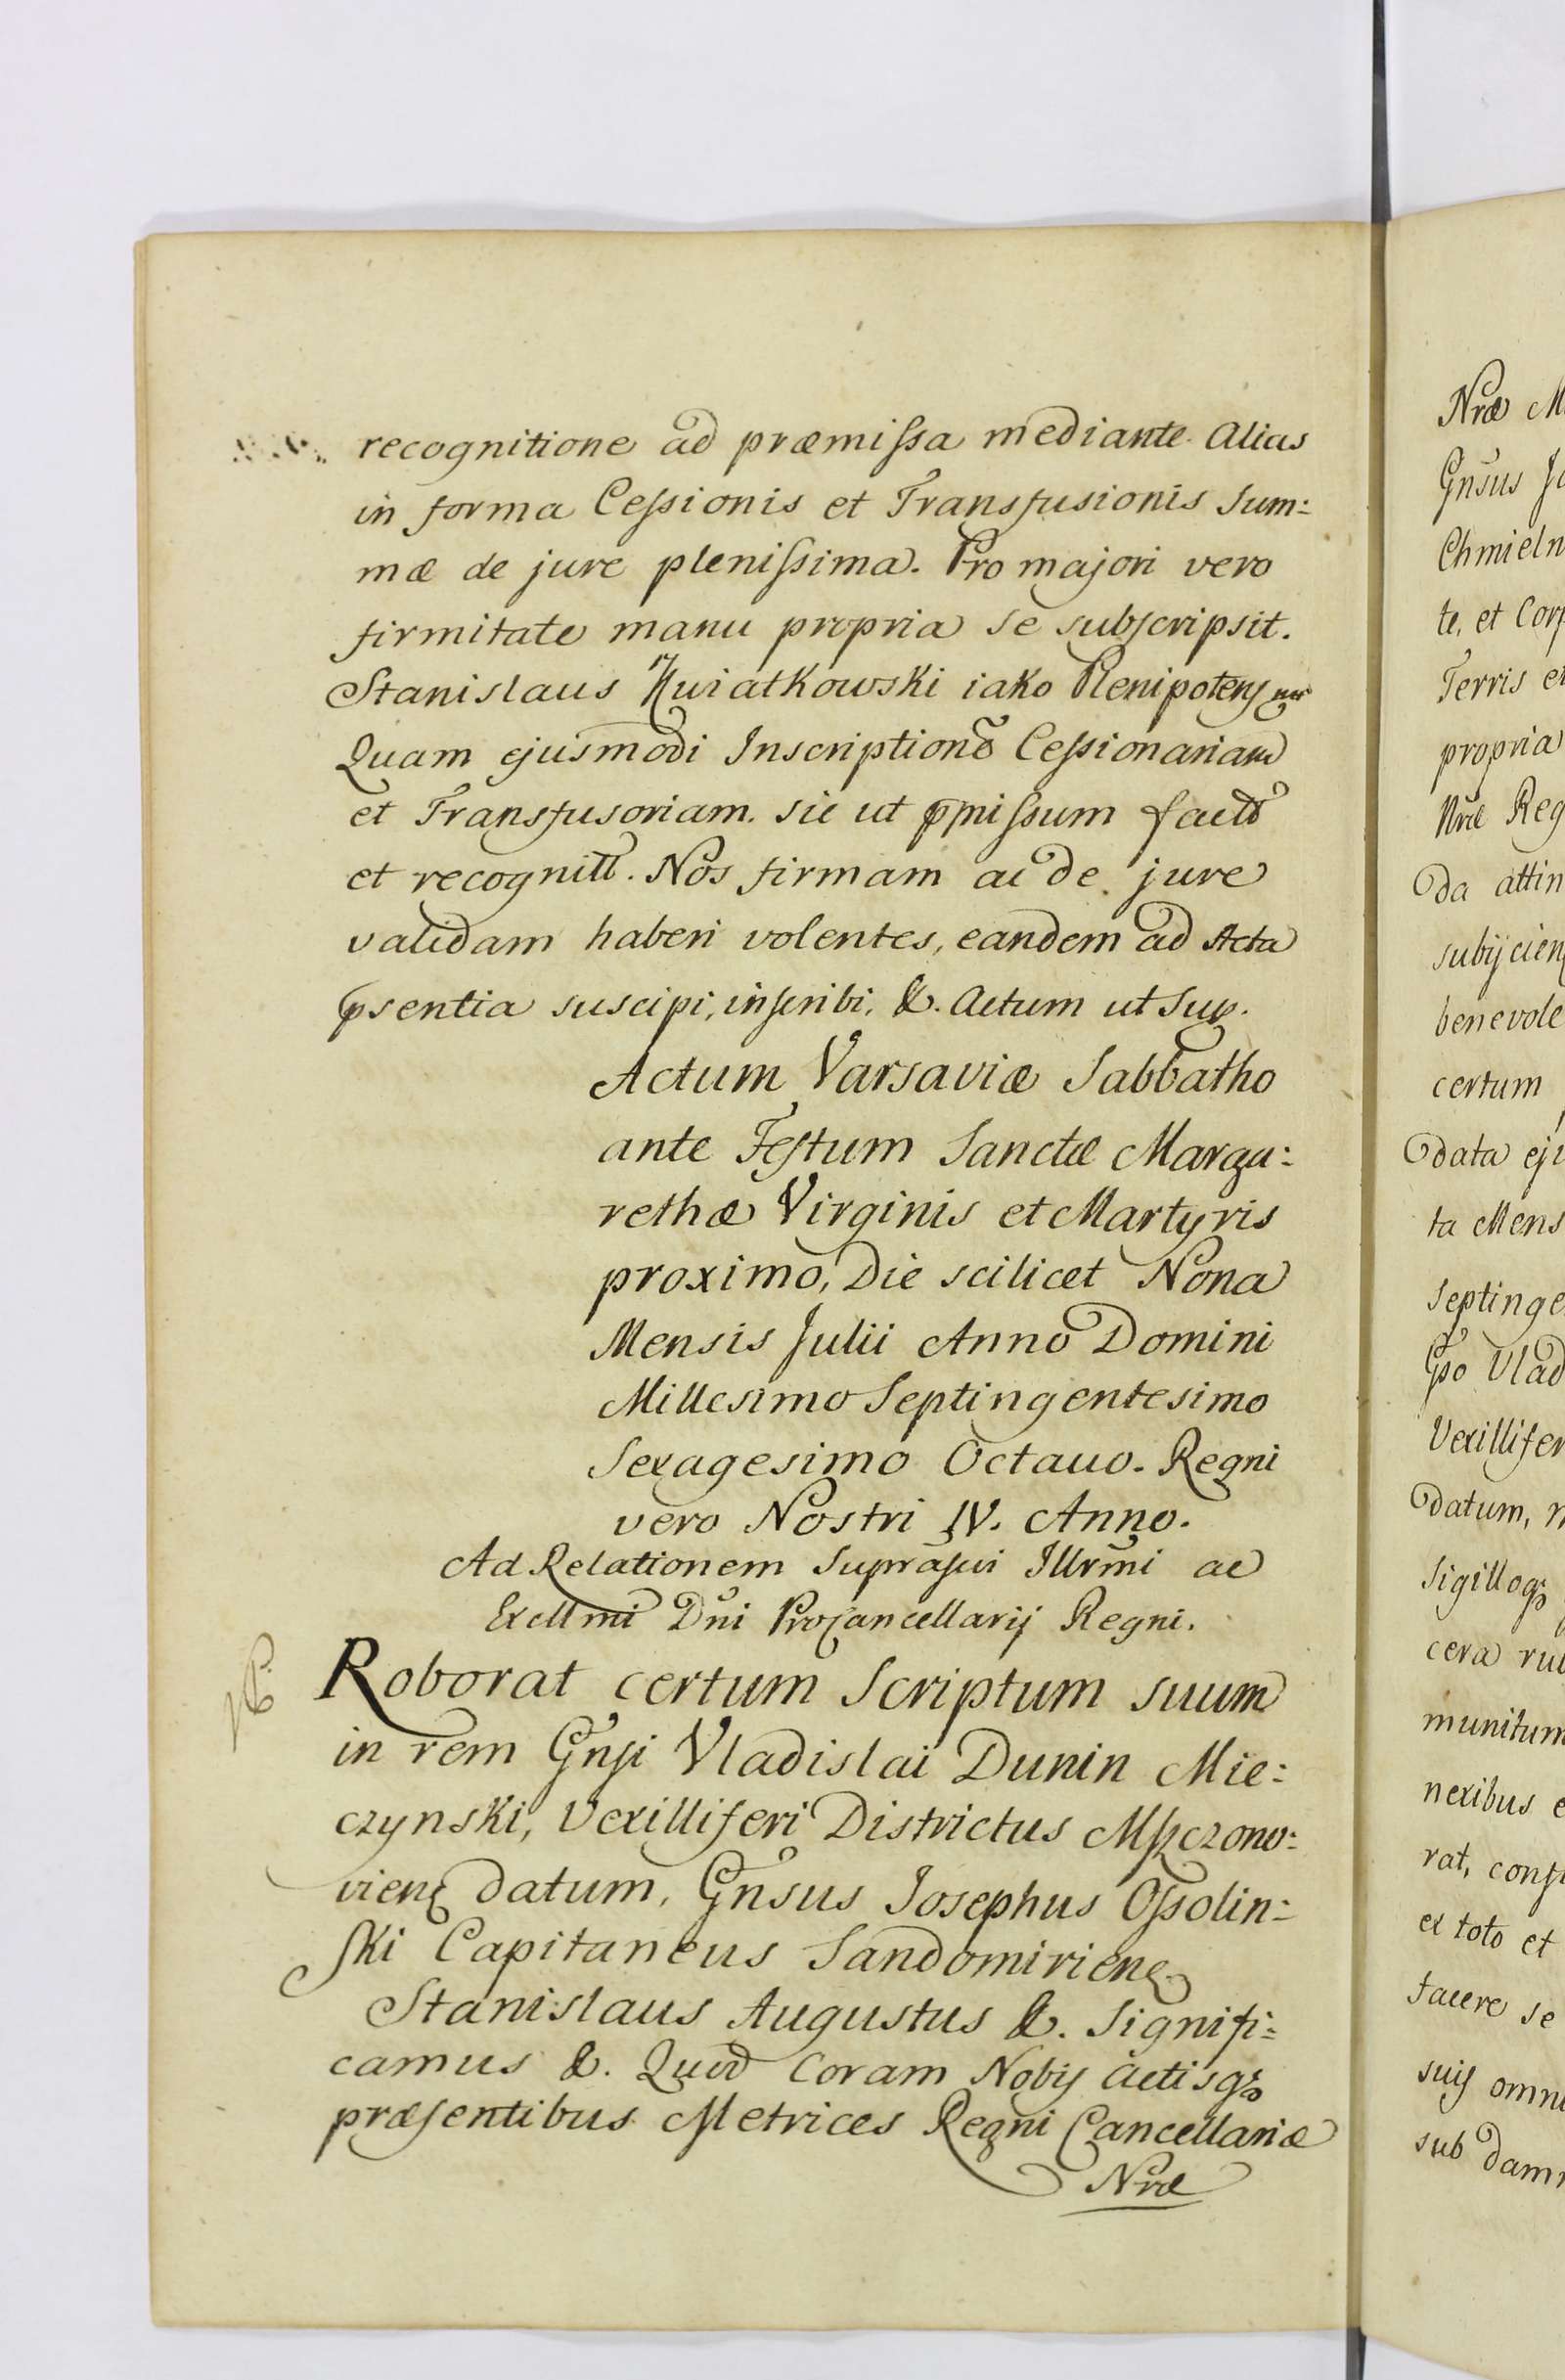 recognitione ad præmiſsa mediante Alias
in forma Ceſsionis et Transfusionis Sum:
mæ de jure pleniſsima. Pro majori vero
firmitate manu propria se subscripsit.
Stanislaus Kwiatkowski iako Plenipotens
Quam ejusmodi Inscriptionẽ Ceſsionariam
et Transfusoriam sic ut p̄miſsum factã
et recognitã. Nos firmam ac de jure
validam haberi volentes, eandem ad Acta
p̄sentia suscipi, inscribi, &. Actum ut Sup.
Actum Varsaviæ Sabbatho
ante Festum Sanctæ Marga:
rethæ Virginis et Martyris
proximo, Die scilicet Nona
Mensis Julii Anno Domini
Millesimo Septingentesimo
Sexagesimo Octavo. Regni
vero Nostri IV. Anno.
Ad Relationem Suprascri Illrmi ac
Excllmi Dñi ProCancellarij Regni.
Roborat certum Scriptum suum
in rem Gñsi Vladislai Dunin Mie:
czynski, Vexilliferi Districtus Mszczono:
vieng datum, Gñsus Josephus Oſsolin:
ski Capitaneus Sandomirieng
Stanislaus Augustus &. Signifi:
camus &. Quod Coram Nobis Actisq3
præsentibus Metrices Regni Cancellariæ
Nræ
Nræ M
Gñsus Jo
Chmieln
te, et Corp
Terris et
propria
Nræ Reg
da attin
subijcien
benevole
certum
data eju
ta Mens
Septinge
Gso Vlad
Vexillifer
datum, m
Sigilloq3
cera rub
munitum
nexibus e
rat, consc
ex toto et
facere se
suis omni
sub damn